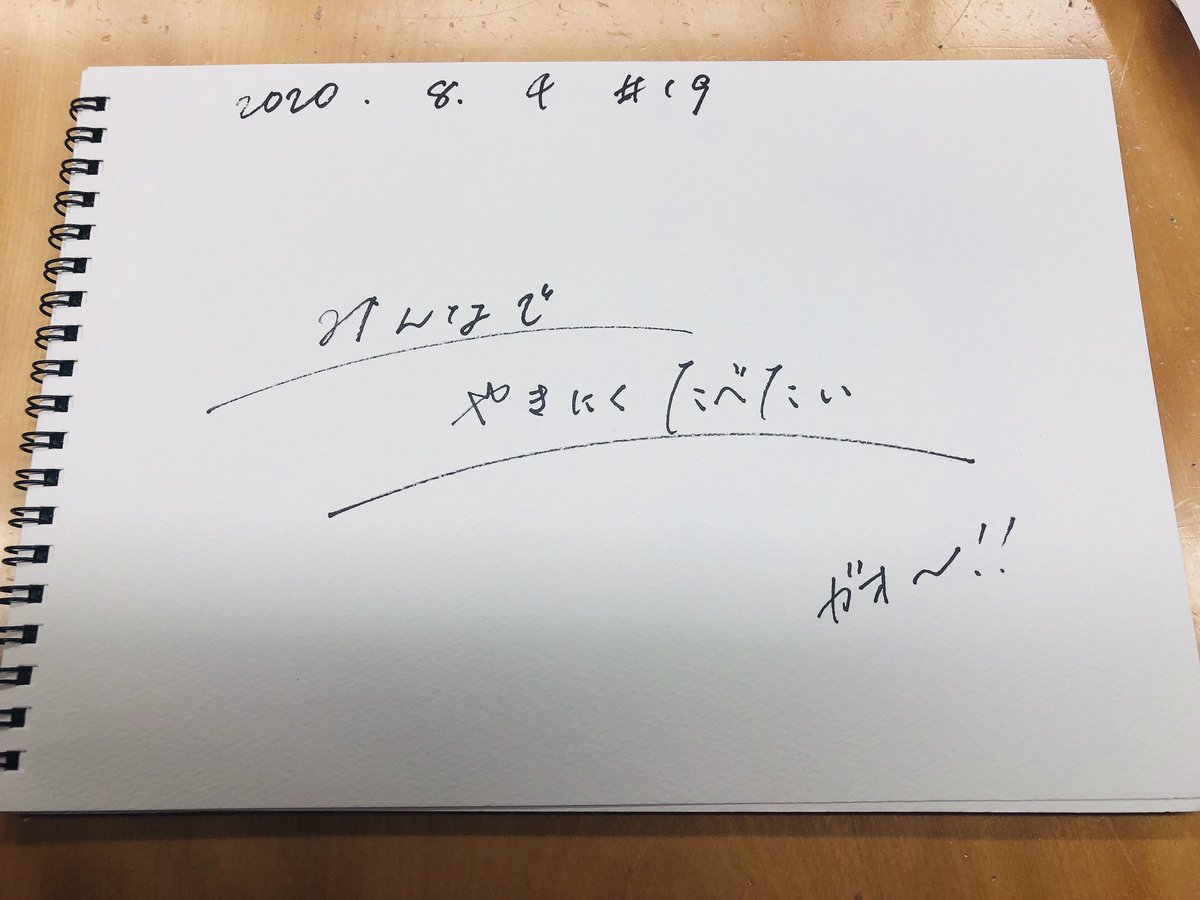 2020. 8. 4 #19
みんなで
やきにくたべたい
ガオ〜!!